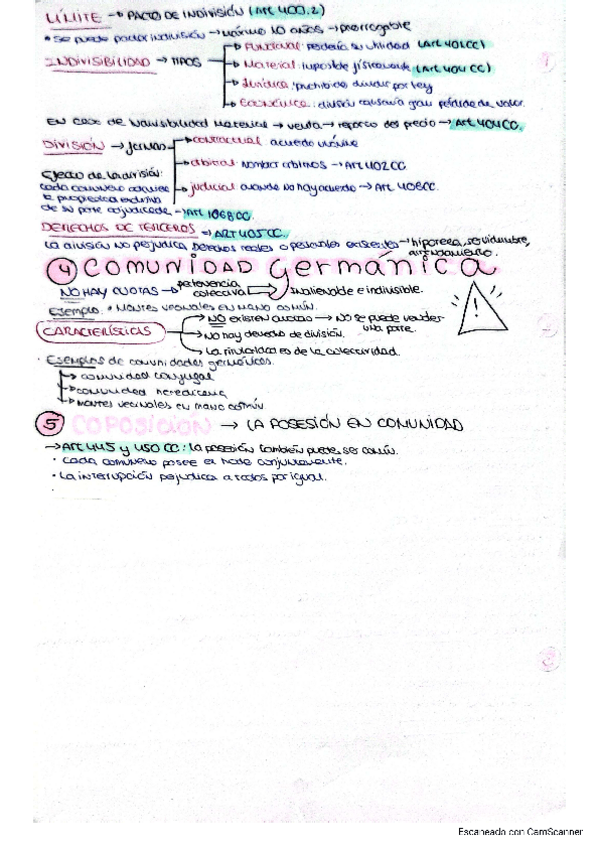 LÍMITE → PACTO DE INDIVISIÓN (Art 400.2)
• Se puede pactar indivisión → máximo 10 años → prorrogable
INDIVISIBILIDAD → TIPOS
→ Funcional: perdería su utilidad (Art 401CC)
→ Material: imposible físicamente (Art 404 CC)
→ Jurídica: prohibido dividir por ley
→ Económica: división causaría gran pérdida de valor.
EN CASO DE Indivisibilidad Material → venta → reparto del precio → Art 404CC.
DIVISIÓN → formas
→ contractual acuerdo unánime
→ arbitral: nombrar árbitros → Art 402CC
→ judicial cuando no hay acuerdo → Art 406CC.
Efecto de la división:
cada comunero adquiere
la propiedad exclusiva
de su parte adjudicada → Art 1068CC.
DERECHOS DE TERCEROS → ART 405CC.
La división no perjudica derechos reales o personales existentes → hipoteca, servidumbre,
arrendamiento.
4 COMUNIDAD Germánica
NO HAY CUOTAS → pertenencia
colectiva → Inalienable e indivisible.
Ejemplo: • MONTES VECINALES EN MANO COMÚN.
CARACTERÍSTICAS
→ NO existen cuotas → No se puede vender
una parte.
→ No hay derecho de división.
→ La titularidad es de la colectividad.
• Ejemplos de comunidades germánicas.
→ comunidad conyugal
→ comunidad hereditaria
→ montes vecinales en mano común
5 COPOSICIÓN → LA POSESIÓN EN COMUNIDAD
→ Art 445 y 450 CC: la posesión también puede ser común.
• Cada comunero posee el todo conjuntamente.
• La interrupción perjudica a todos por igual.
Escaneado con CamScanner